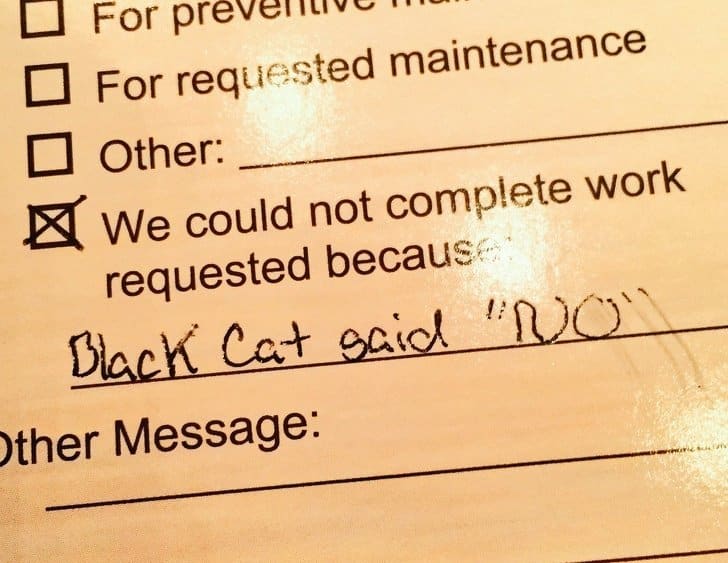 For preventive
For requested maintenance
Other:
We could not complete work
requested because:
Black Cat said "NO"
Other Message: